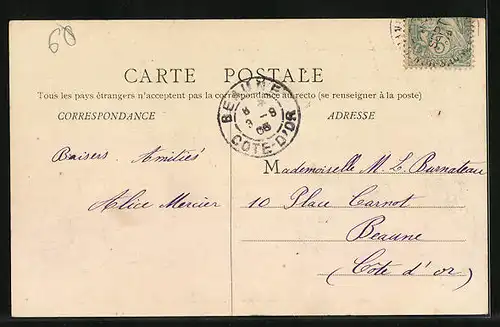 60
CARTE POSTALE
Tous les pays étrangers n'acceptent pas la correspondance au recto (se renseigner à la poste)
CORRESPONDANCE
ADRESSE
BEAUNE
8
3 - 9
06
COTE-D'OR
Baisers. Amitiés
Alice Mercier
Mademoiselle M. L. Burnateau
10 Place Carnot
Beaune
(Côte d'or)